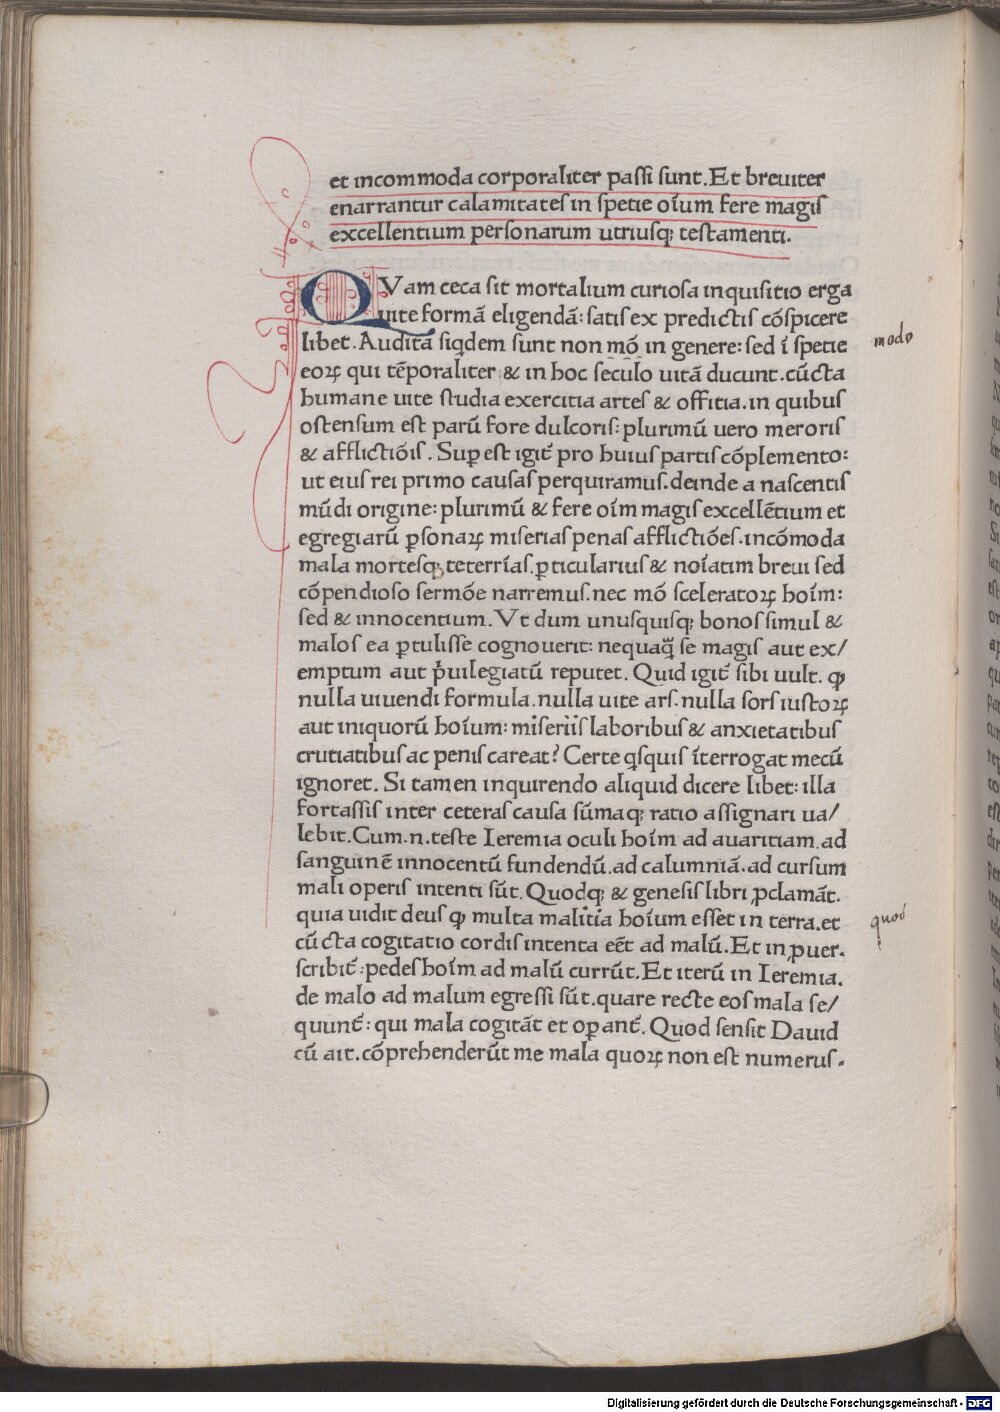 et incommoda corporaliter passi sunt. Et breuiter
enarrantur calamitates in spetie oĩum fere magis
excellentium personarum utriusqꝫ testamenti.
QVam ceca sit mortalium curiosa inquisitio erga
uite formã eligendã: satis ex predictis cõspicere
libet. Auditã siqdem sunt non mõ in genere: sed ĩ spetie
eoꝝ qui tẽporaliter & in hoc seculo uitã ducunt. cũcta
humane uite studia exercitia artes & offitia. in quibus
ostensum est parũ fore dulcoris: plurimũ uero meroris
& afflictiõis. Suꝑest igit̃ pro huius partis cõplemento:
ut eius rei primo causas perquiramus. deinde a nascentis
mũdi origine: plurimũ & fere oĩm magis excellẽtium et
egregiarũ ꝑsonaꝝ miserias penas afflictiões. incõmoda
mala mortesqꝫ teterrĩas. ꝑticularius & noĩatim breui sed
cõpendioso sermõe narremus. nec mõ sceleratoꝝ hoĩm:
sed & innocentium. Vt dum unusquisqꝫ bonos simul &
malos ea ꝑtulisse cognouerit: nequaq̃ se magis aut ex/
emptum aut p̃uilegiatũ reputet. Quid igit̃ sibi uult. ꝙ
nulla uiuendi formula. nulla uite ars. nulla sors iustoꝝ
aut iniquorũ hoĩum: miseriis laboribus & anxietatibus
crutiatibus ac penis careat? Certe qsquis ĩterrogat mecũ
ignoret. Si tamen inquirendo aliquid dicere libet: illa
fortassis inter ceteras causa sũmaqꝫ ratio assignari ua/
lebit. Cum .n. teste Ieremia oculi hoĩm ad auaritiam. ad
sanguinẽ innocentũ fundendũ. ad calumniã. ad cursum
mali operis intenti sũt. Quodqꝫ & genesis libri ꝓclamãt.
quia uidit deus ꝙ multa malitia hoĩum esset in terra. et
cũcta cogitatio cordis intenta eẽt ad malũ. Et in ꝓuer.
scribit̃: pedes hoĩm ad malũ currũt. Et iterũ in Ieremia.
de malo ad malum egressi sũt. quare recte eos mala se/
quunt̃: qui mala cogitãt et oꝑant̃. Quod sensit Dauid
cũ ait. cõprehenderũt me mala quoꝝ non est numerus.
modo
quod
Digitalisierung gefördert durch die Deutsche Forschungsgemeinschaft - DFG